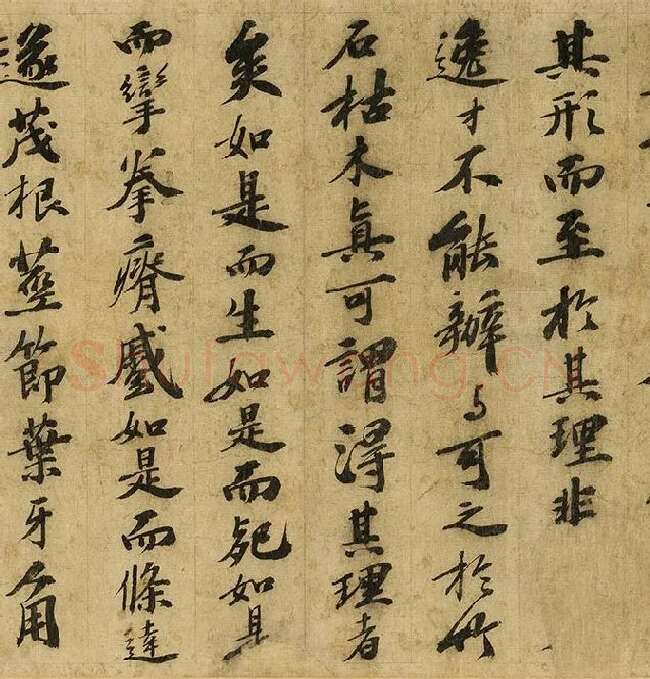 其形而至於其理非
逸才不能辦与可之於竹
石枯木真可謂得其理者
矣如是而生如是而死如是
而攣拳瘠蹙如是而條達
遂茂根莖節葉牙角
Shufawang.CN